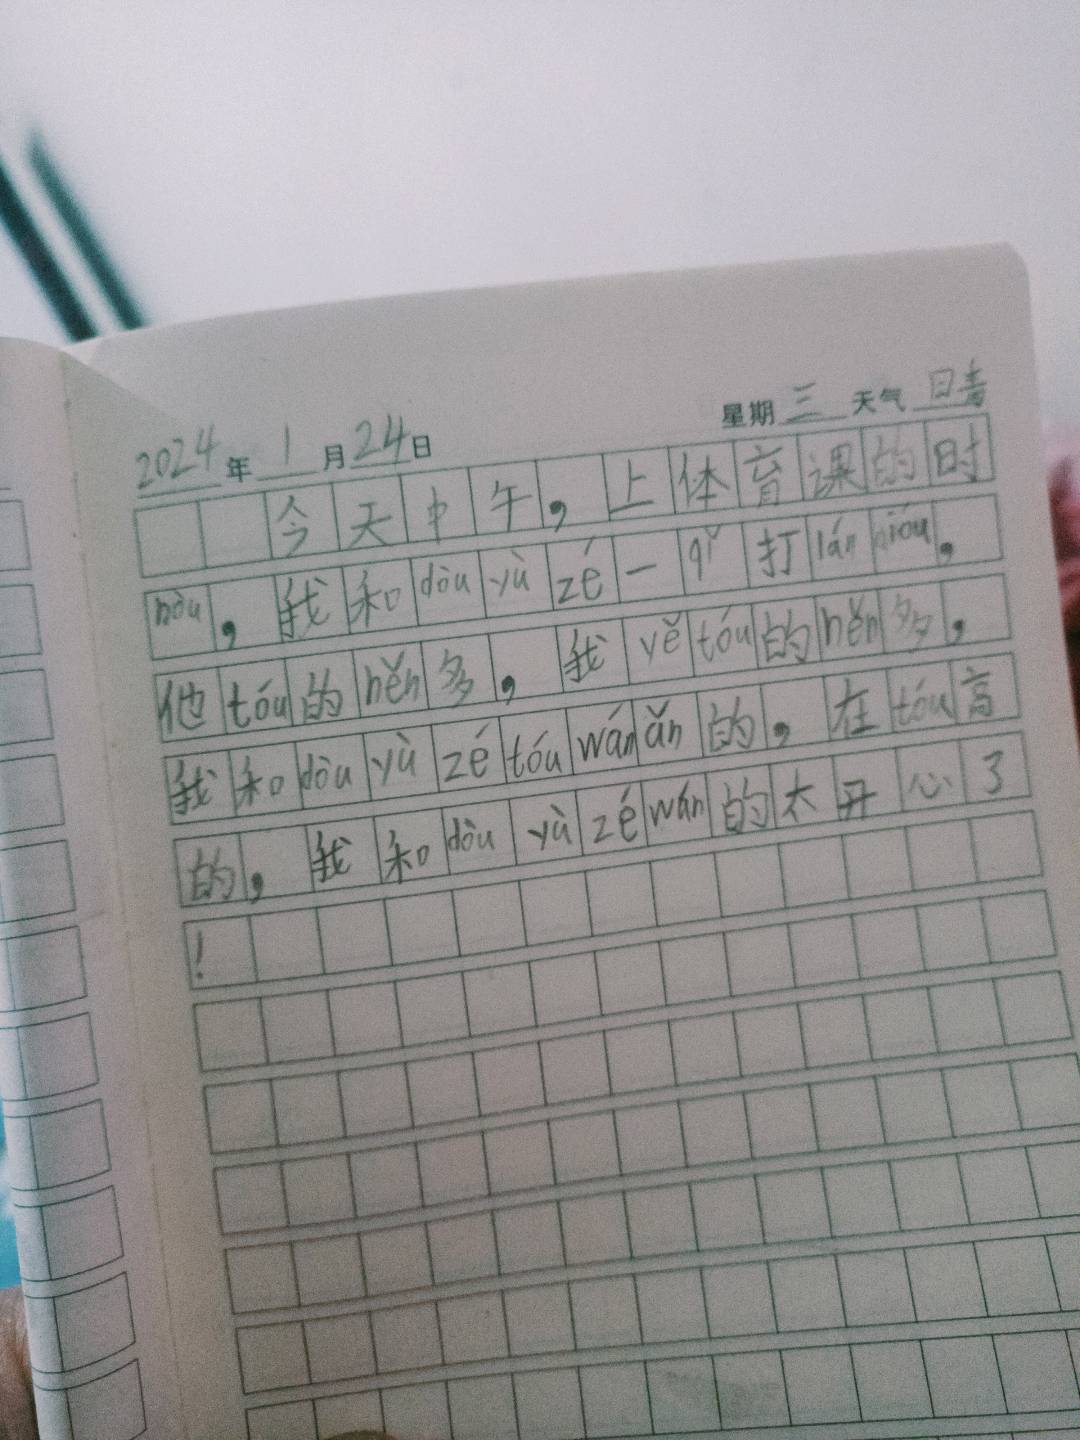 2024年1月24日 星期三 天气晴
今天中午，上体育课的时
hòu，我和dòu yù zé一qǐ打lán qióu，
他tóu的hěn多，我yě tóu的hěn多，
我和dòu yù zé tóu wán ǎn的，在tóu高
的，我和dòu yù zé wán的太开心了
！